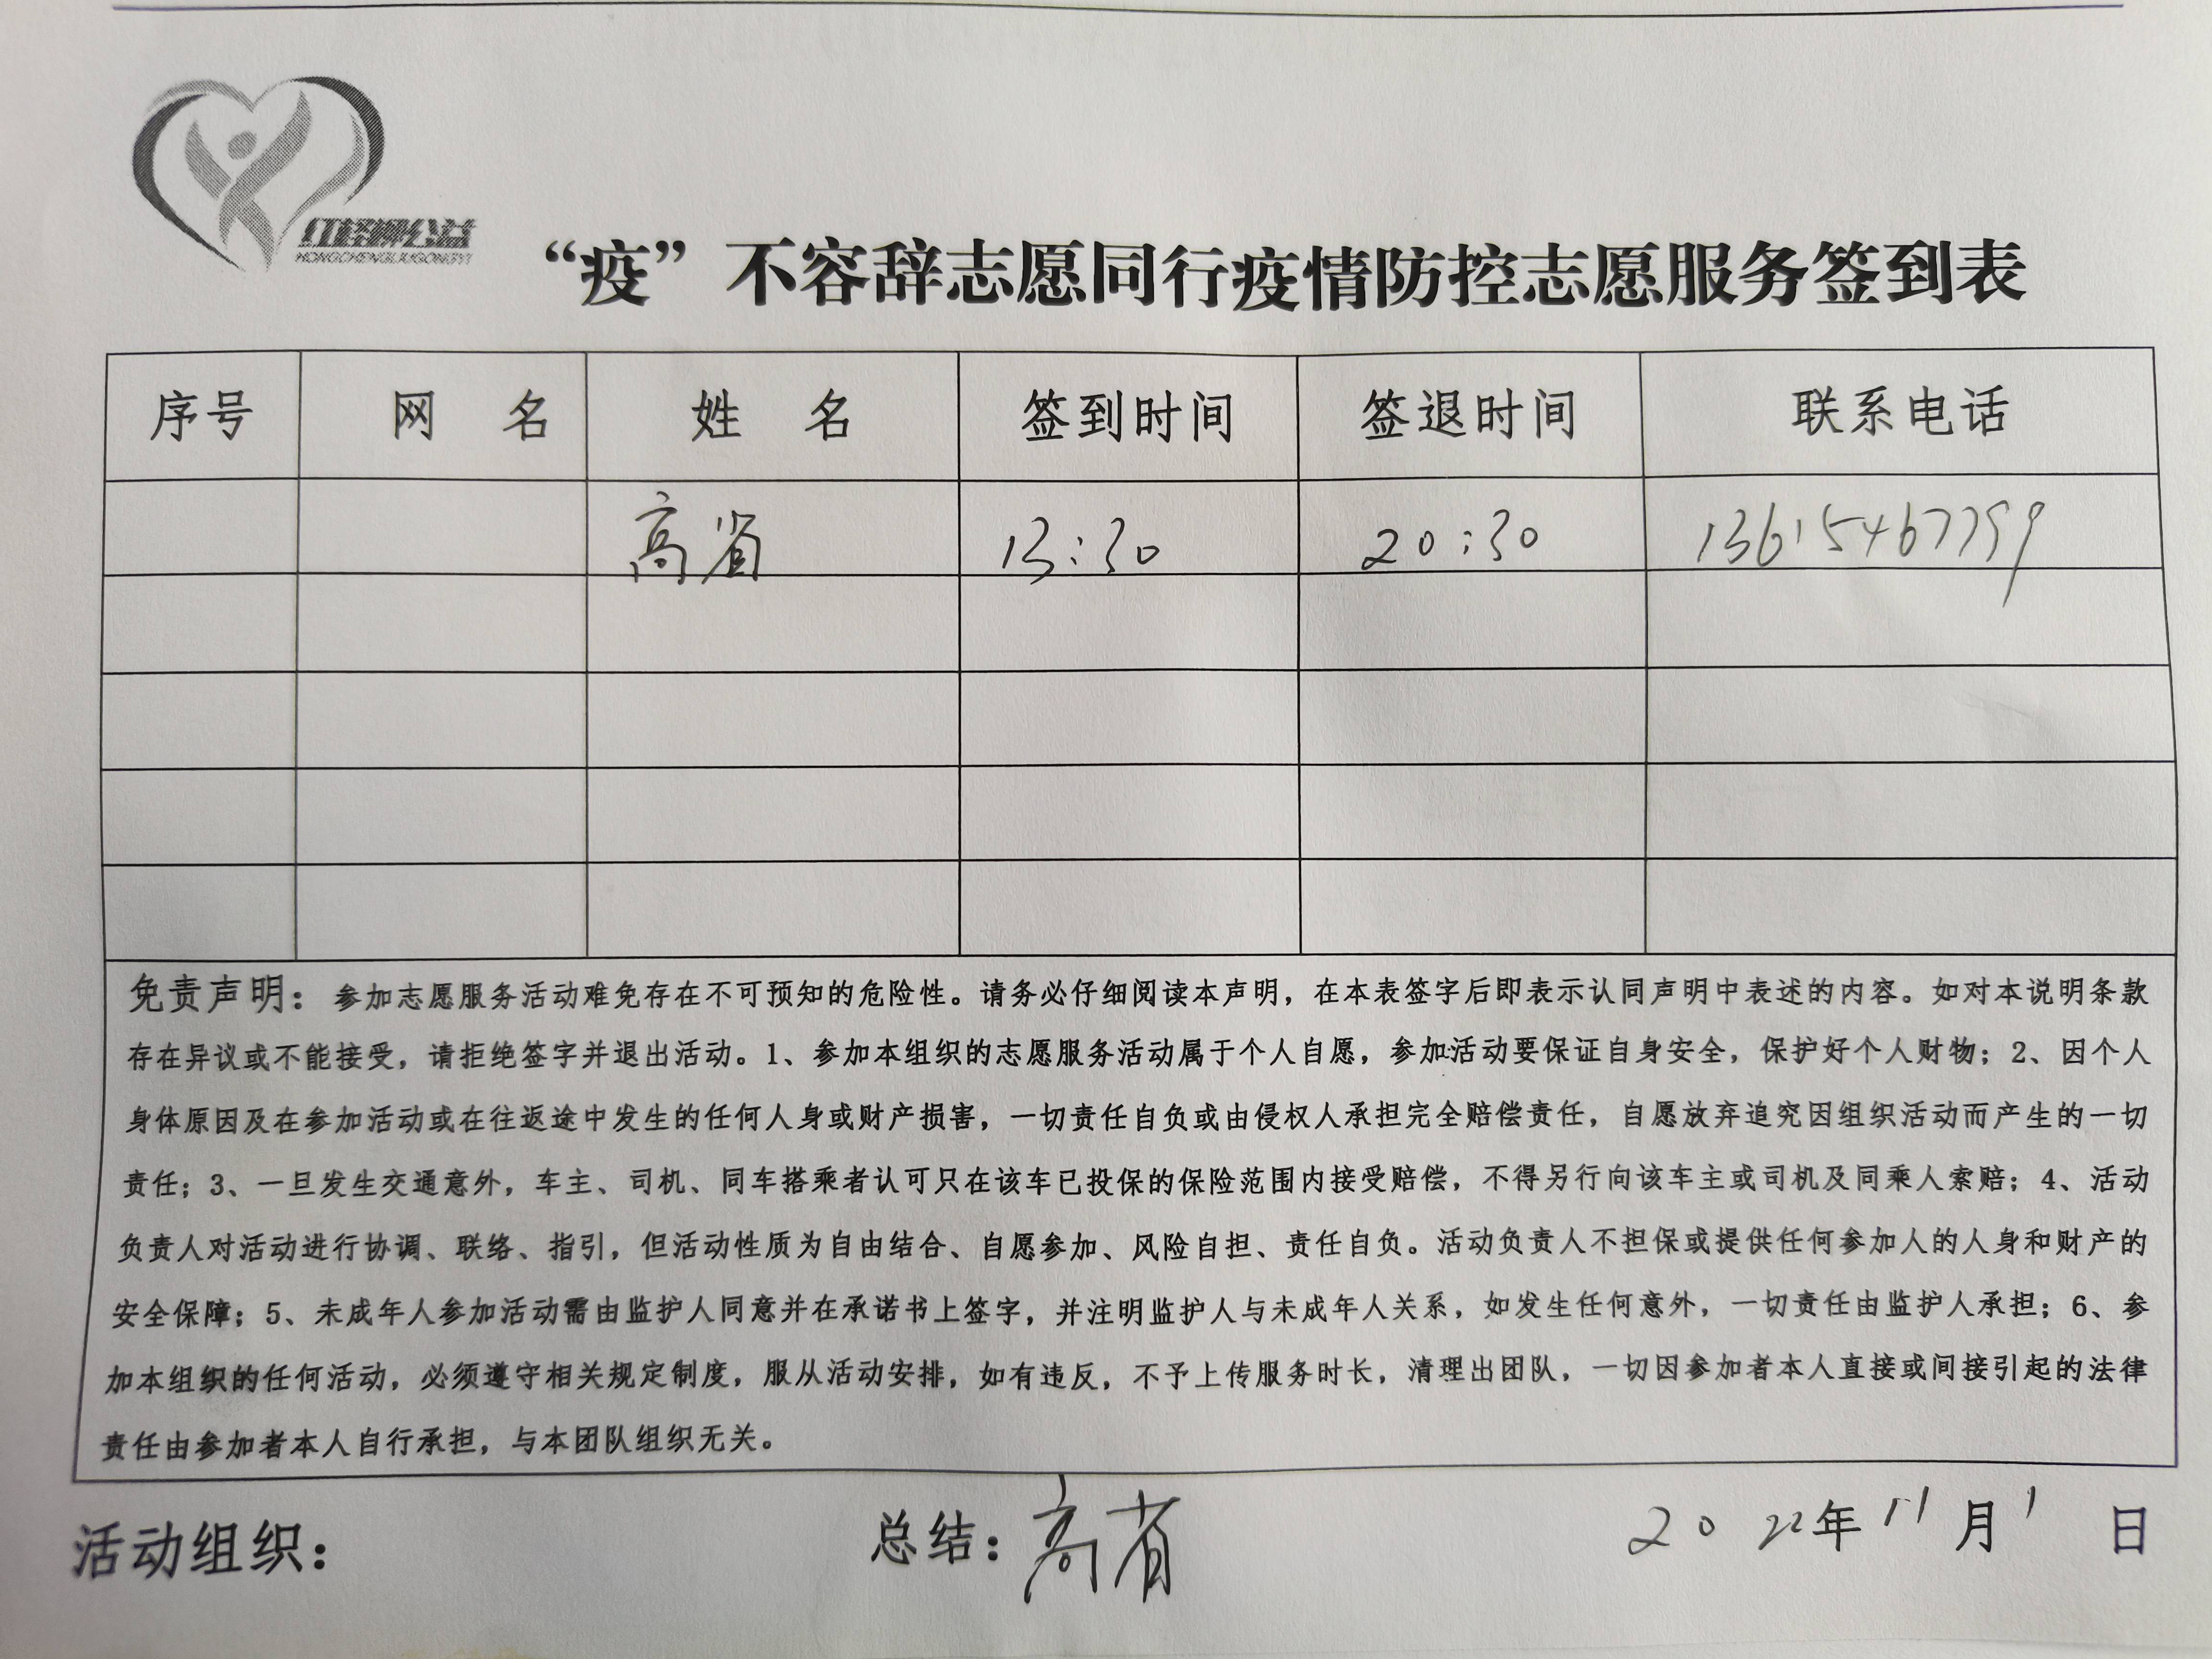 红柽柳公益
HONGCHENGLIUGONGYI
“疫”不容辞志愿同行疫情防控志愿服务签到表
序号 网 名 姓 名 签到时间 签退时间 联系电话
高省 13:30 20:30
免责声明：参加志愿服务活动难免存在不可预知的危险性。请务必仔细阅读本声明，在本表签字后即表示认同声明中表述的内容。如对本说明条款
存在异议或不能接受，请拒绝签字并退出活动。1、参加本组织的志愿服务活动属于个人自愿，参加活动要保证自身安全，保护好个人财物；2、因个人
身体原因及在参加活动或在往返途中发生的任何人身或财产损害，一切责任自负或由侵权人承担完全赔偿责任，自愿放弃追究因组织活动而产生的一切
责任；3、一旦发生交通意外，车主、司机、同车搭乘者认可只在该车已投保的保险范围内接受赔偿，不得另行向该车主或司机及同乘人索赔；4、活动
负责人对活动进行协调、联络、指引，但活动性质为自由结合、自愿参加、风险自担、责任自负。活动负责人不担保或提供任何参加人的人身和财产的
安全保障；5、未成年人参加活动需由监护人同意并在承诺书上签字，并注明监护人与未成年人关系，如发生任何意外，一切责任由监护人承担；6、参
加本组织的任何活动，必须遵守相关规定制度，服从活动安排，如有违反，不予上传服务时长，清理出团队，一切因参加者本人直接或间接引起的法律
责任由参加者本人自行承担，与本团队组织无关。
活动组织： 总结：高省 2022年11月1日